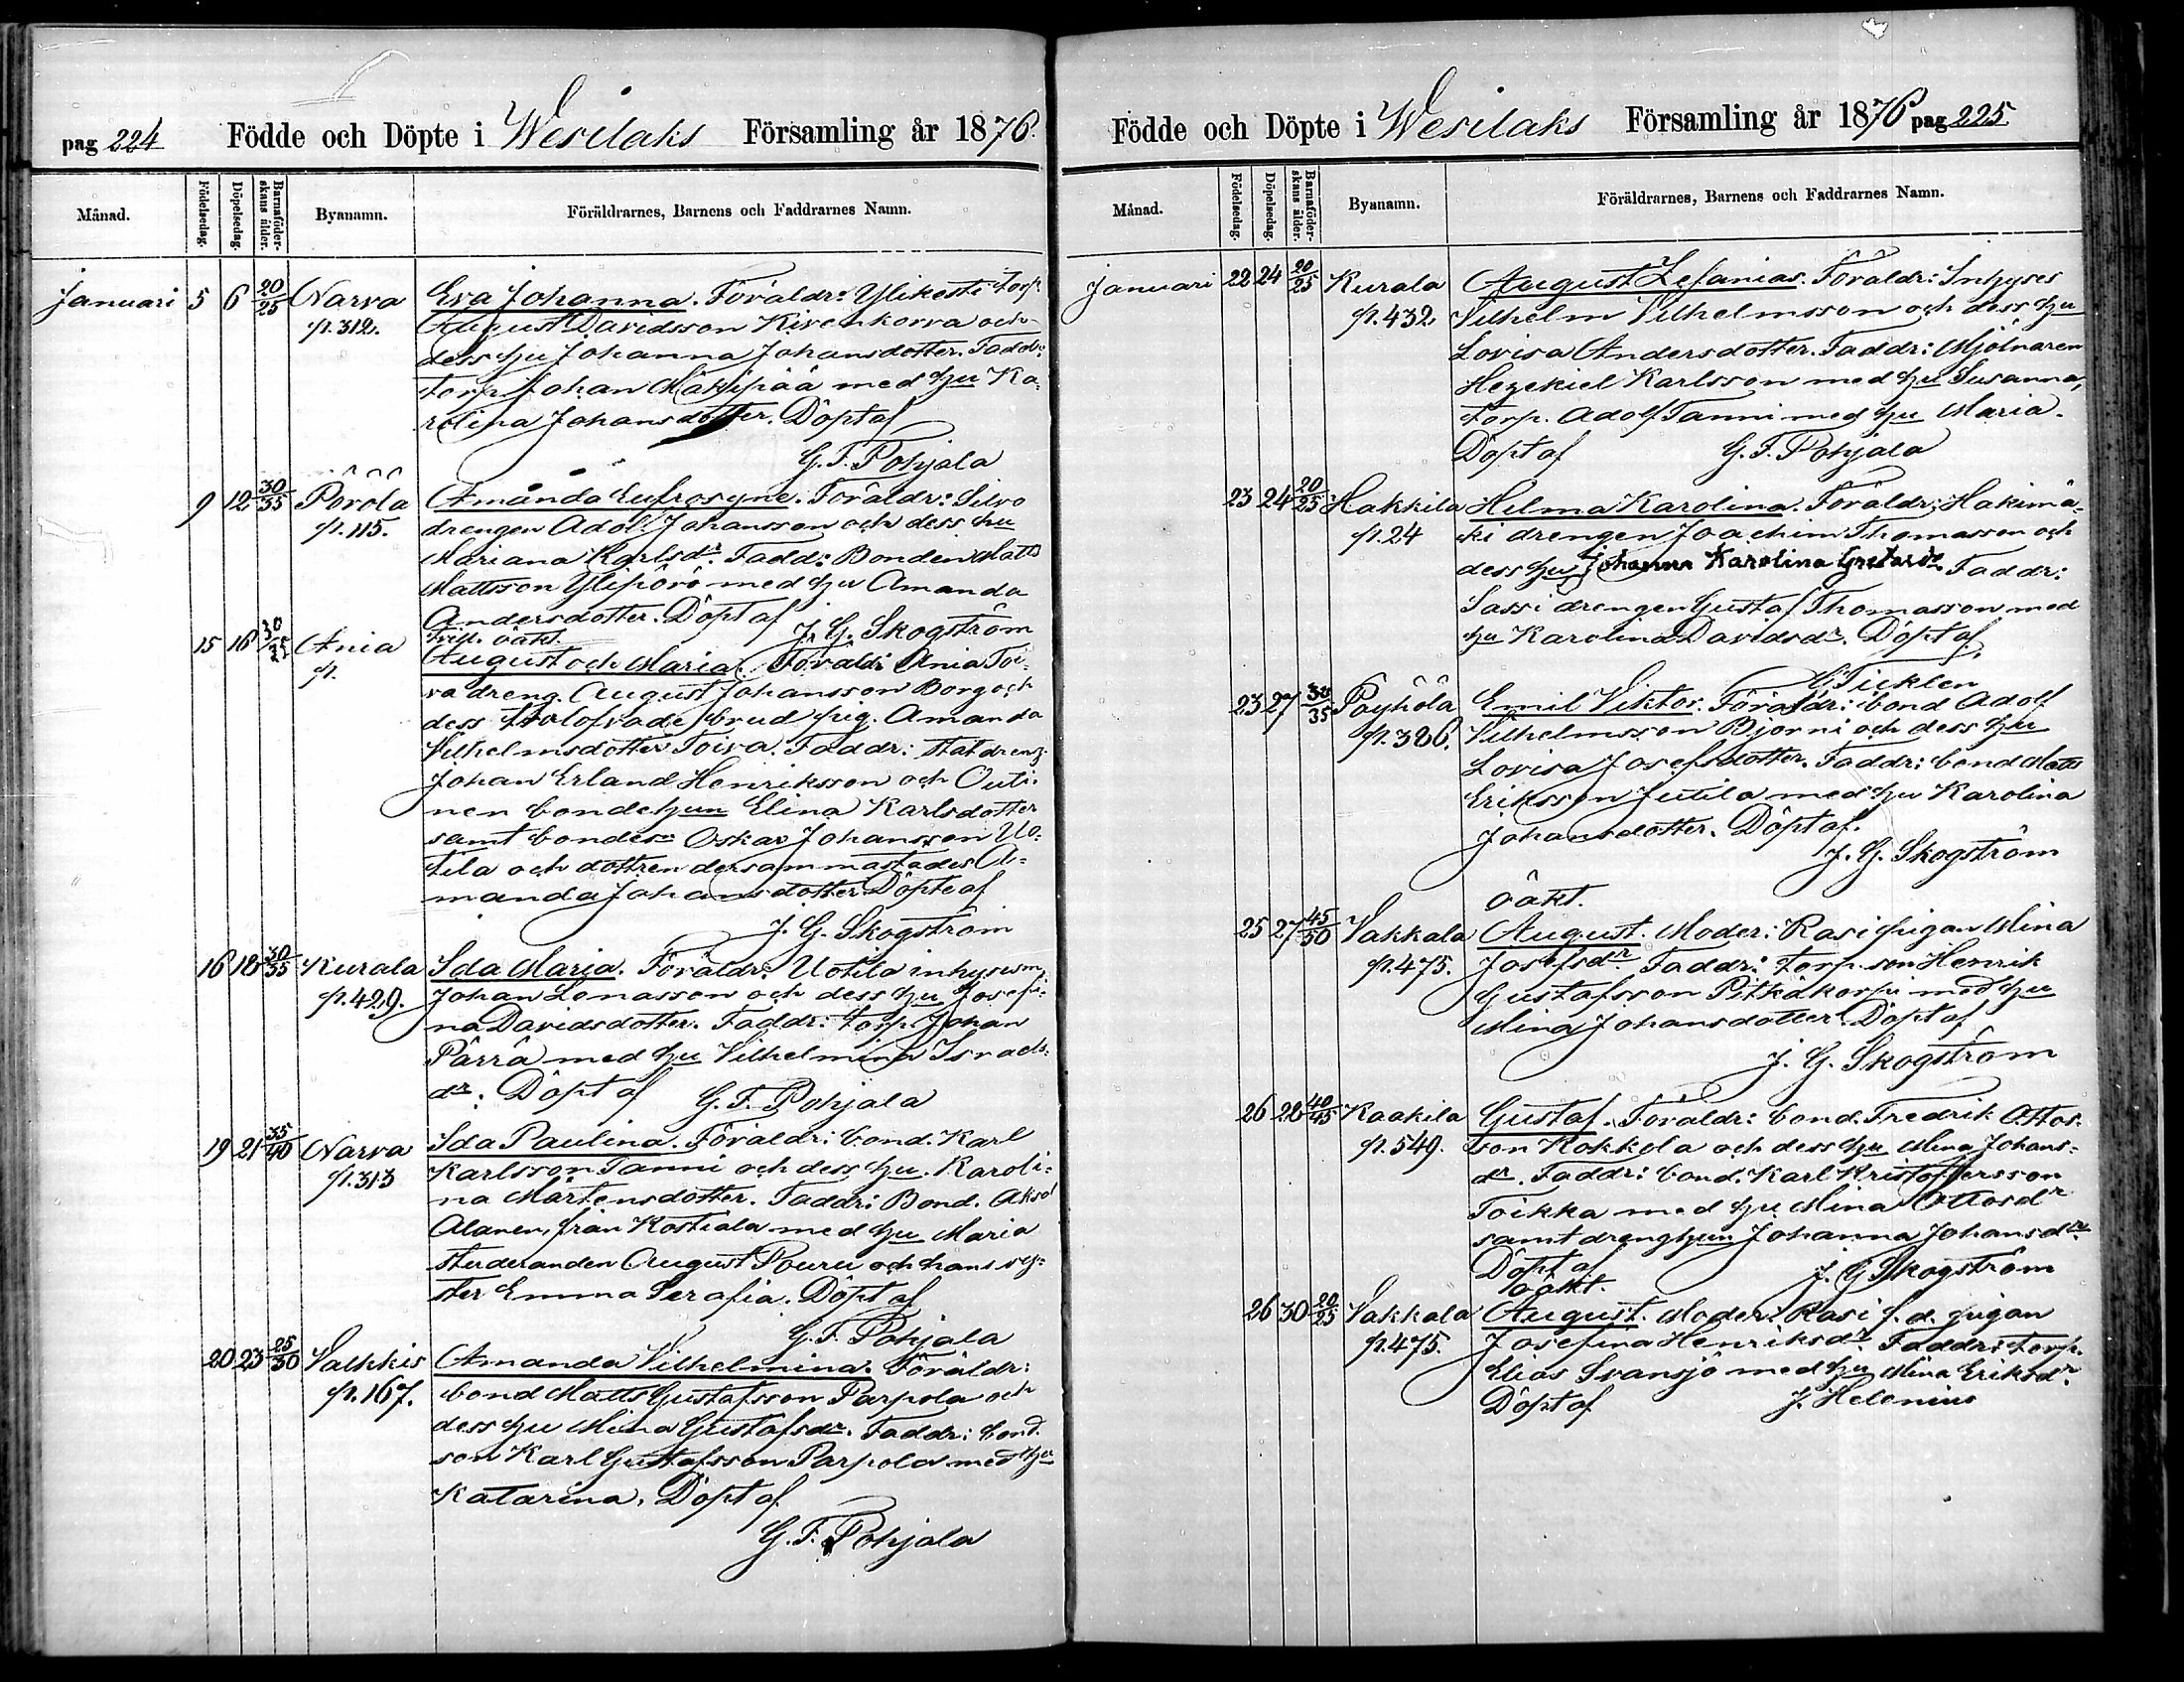 pag 224
Födde och Döpte i Wesilaks Församling år 1876.
Månad.
Födelsedag.
Döpelsedag.
Barnaföderskans ålder.
Byanamn.
Föräldrarnes, Barnens och Faddrarnes Namn.
Januari 5 6 20/25 Narva Eva Johanna. Föräldr: Ylikesti Torp.
p. 312. August Davidsson Kivenkorva och
dess hu Johanna Johansdotter. Fadd:
torp. Johan Mäkipää med hu Ka-
rolina Johansdotter. Döpt af
G. F. Pohjala
9 12 30/35 Pöröla Amanda Eufrosyne. Föräldr: Silvo
p. 115. drengen Adolf Johansson och dess hu
Mariana Karlsdr. Fadd: Bonden Matts
Mattsson Ylipörö med hu Amanda
Andersdotter. Döpt af J. G. Skogström
tvill. oäkt.
15 16 30/35 Ania August och Maria. Föräldr: Ania Toi-
p. va dreng. August Johansson Borg och
dess trolofvade brud pig. Amanda
Vilhelmsdotter Toiva. Faddr: statdreng.
Johan Erland Henriksson och Outi-
nen bondehun Elina Karlsdotter
samt bondes. Oskar Johansson Uo-
tila och dottren dersammastädes A-
manda Johansdotter Döpte af
J. G. Skogström
16 18 30/35 Kurala Ida Maria. Föräldr: Uotila inhysesm.
p. 429. Johan Lenasson och dess hu Josefi-
na Davidsdotter. Faddr: torp. Johan
Pärrä med hu Vilhelmina Israels-
dr. Döpt af G. F. Pohjala
19 21 35/40 Narva Ida Paulina. Föräldr: bond. Karl
p. 313 Karlsson Tanni och dess hu. Karoli-
na Mårtensdotter. Faddr: Bond. Aksel
Alanen, från Kostiala med hu Maria
studeranden August Pouru och hans sy-
ster Emma Serafia. Döpt af
G. F. Pohjala
20 23 25/30 Valkkis Amanda Vilhelmina. Föräldr:
p. 167. bond Matts Gustafsson Parpola och
dess hu Mina Gustafsdr. Faddr: bond.
son Karl Gustafsson Parpola med hu
Katarina. Döpt af
G. F. Pohjala
Födde och Döpte i Wesilaks Församling år 1876 pag 225
Månad.
Födelsedag.
Döpelsedag.
Barnaföderskans ålder.
Byanamn.
Föräldrarnes, Barnens och Faddrarnes Namn.
Januari 22 24 20/25 Kurala August Zefanias. Föräldr: Inhyses
p. 432. Vilhelm Vilhelmsson och dess hu
Lovisa Andersdotter. Faddr: Mjölnaren
Hezekiel Karlsson med hu Susanna,
torp. Adolf Tanni med hu Maria.
Döpt af G. F. Pohjala
23 24 20/25 Hakkila Helma Karolina. Föräldr: Hakimä-
p. 24 ki drengen Joachim Thomasson och
dess hu Johanna Karolina Gustavsdr. Faddr:
Sassi drengen Gustaf Thomasson med
hu Karolina Davidsdr. Döpt af
G Ticklen
23 27 30/35 Pöyhölä Emil Viktor. Föräldr: bond Adolf
p. 386. Vilhelmsson Bjorni och dess hu
Lovisa Josefsdotter. Faddr: bond Matts
Eriksson Jutila med hu Karolina
Johansdotter. Döpt af.
J. G. Skogström
oäkt.
25 27 45/50 Vakkala August. Moder: Rasi pigan Mina
p. 475. Josefsdr. Faddr: torp. son Henrik
Gustafsson Pitkäkorpi med hu
Mina Johansdotter. Döpt af
J. G. Skogström
26 28 40/45 Kaakila Gustaf. Föräldr: bond. Fredrik Ottos-
p. 549. son Kokkola och dess hu Mina Johans-
dr. Faddr: bond. Karl Kristoffersson
Toikka med hu Mina Ottosdr
samt drenghun Johanna Johansdr.
Döpt af J. G Skogström
oäkt.
26 30 20/25 Vakkala August. Moder: Rasi f. d. pigan
p. 475. Josefina Henriksdr. Faddr: torp.
Elias Svansjö med hu Mina Eriksdr.
Döpt af J. Helenius